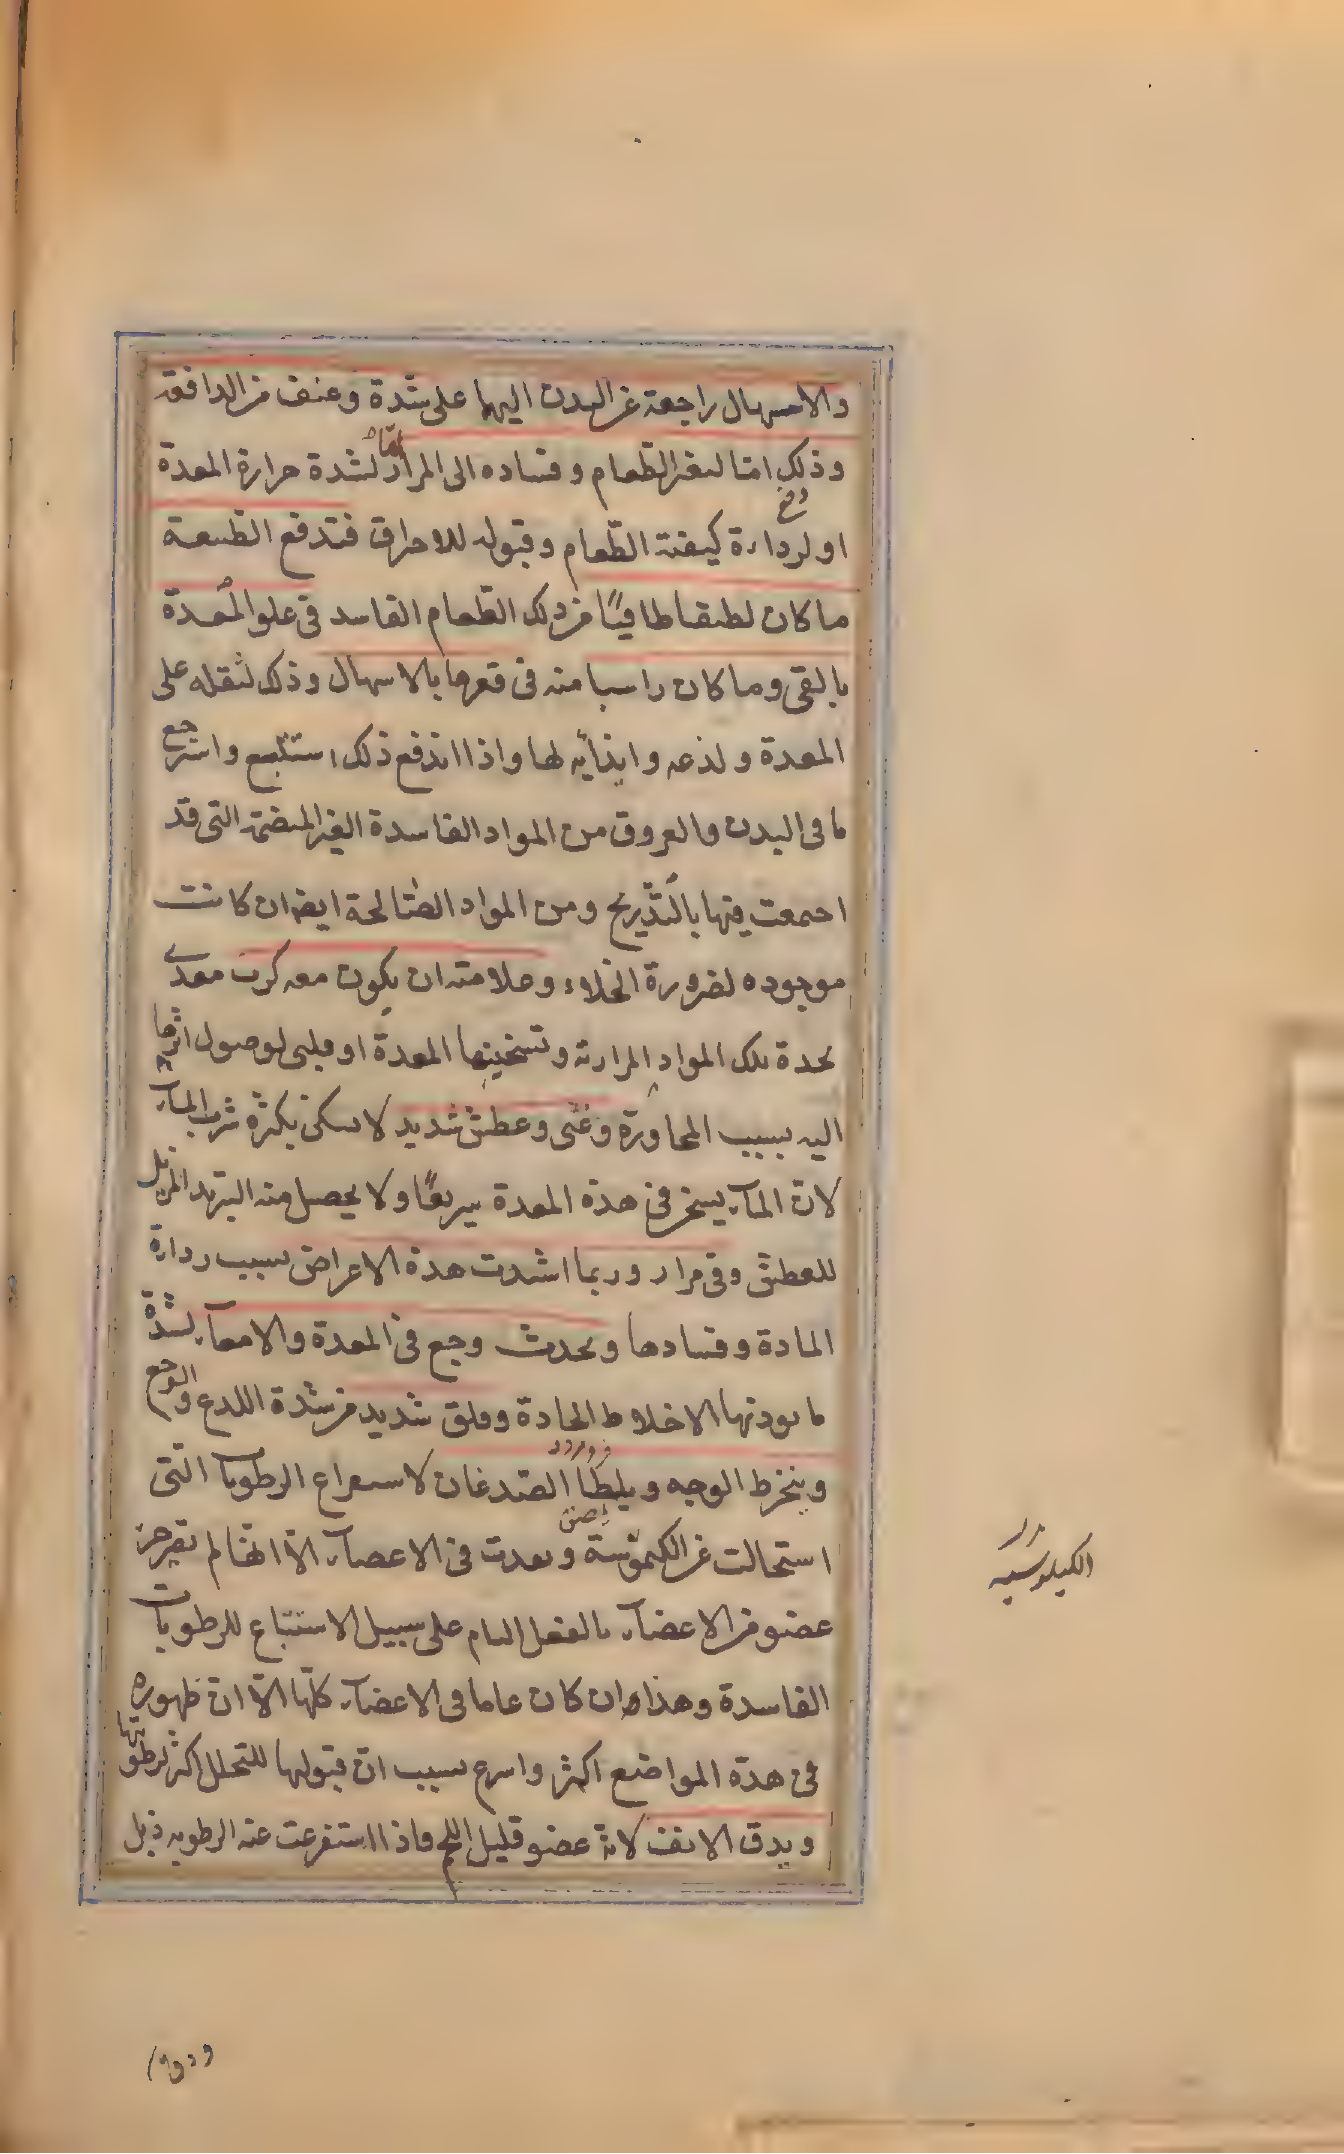 والاسهال راجعة عن البدن اليهما على شدة وعنف من الدافعة
وذلك اما لتغير الطعام وفساده الى المرار لشدة حرارة المعدة
او لرداءة كيفية الطعام وقبوله للاحراق فتدفع الطبيعة
ما كان لطيفا طافيًا من ذلك الطعام الفاسد فى علو المعدة
بالقى وما كان راسبا منه فى قعرها بالاسهال وذلك لثقله على
المعدة ولذعه وايذائه لها واذا اندفع ذلك استتبع واسترجع
ما فى البدن والعروق من المواد الفاسدة الغير المنهضمة التى قد
اجتمعت فيها بالتّدريج ومن المواد الصّالحة ايضا ان كانت
موجوده لضرورة الخلاء وعلامته ان يكون معه كرب معدى
بحدة تلك المواد المرارية وتسخينها المعدة او قلبى لوصول اثرها
اليه بسبب المجاورة وغثى وعطش شديد لا يسكن بكثرة شرب المآء
لان المآء يسخن فى هذه المعدة سريعًا ولا يحصل منه التبريد المزيل
للعطش وقى مرار وربما اشتدت هذه الاعراض بسبب رداءة
المادة وفسادها ويحدث وجع فى المعدة والامعآء لشدّة
ما يوذيها الاخلاط الحادة وقلق شديد من شدة اللذع والوجع
وينخرط الوجه ويلطأ الصّدغان لاستفراغ الرطوبات التى
استحالت عن الكيموسية وبعدت فى الاعضآء الّا انها لم تصر جزء
عضو من الاعضآء بالفعل التام على سبيل الاستتباع للرطوبات
الفاسدة وهذا وان كان عاما فى الاعضآء كلّها الّا ان ظهوره
فى هذه المواضع اكثر واسرع بسبب ان قبولها للتحلل اكثر لرطوبتها
ويدق الانف لانه عضو قليل اللحم فاذا استفرغت عنه الرطوبه ذبل
الكيلوسيه